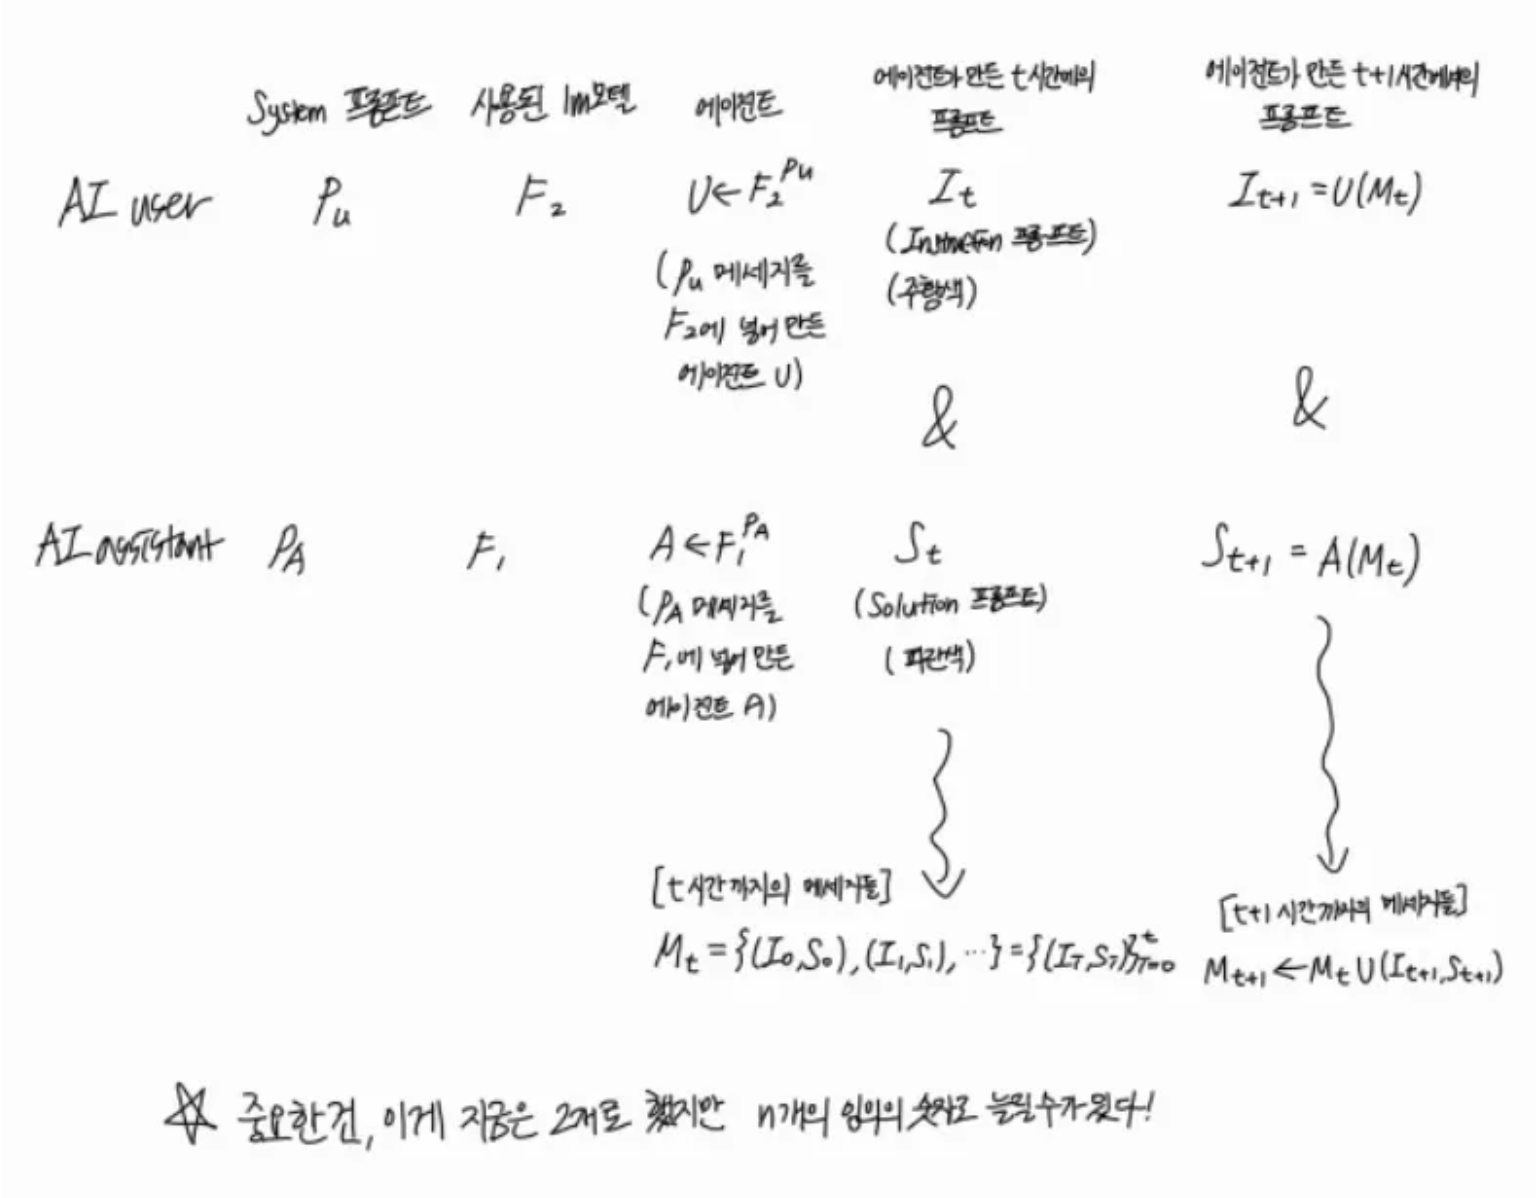 System 프롬프트 사용된 lm모델 에이전트 에이전트가 만든 t시간에의 프롬프트 에이전트가 만든 t+1시간에서의 프롬프트
AI user P_u F_2 U←F_2^{P_u} I_t I_{t+1} = U(M_t)
(Instruction 프롬프트)
(P_u 메세지를
(주황색)
F_2에 넣어 만든
에이전트 U)
& &
AI assistant P_A F_1 A←F_1^{P_A} S_t S_{t+1} = A(M_t)
(P_A 메세지를 (Solution 프롬프트)
F_1에 넣어 만든 (파란색)
에이전트 A)
[t시간까지의 메세지들] [t+1시간까지의 메세지들]
M_t = {(I_0,S_0), (I_1,S_1), ...} = {(I_T,S_T)}_{T=0}^t M_{t+1} ← M_t U (I_{t+1}, S_{t+1})
☆ 중요한건, 이게 지금은 2개로 했지만 n개의 임의의 숫자로 늘릴수가 있다!